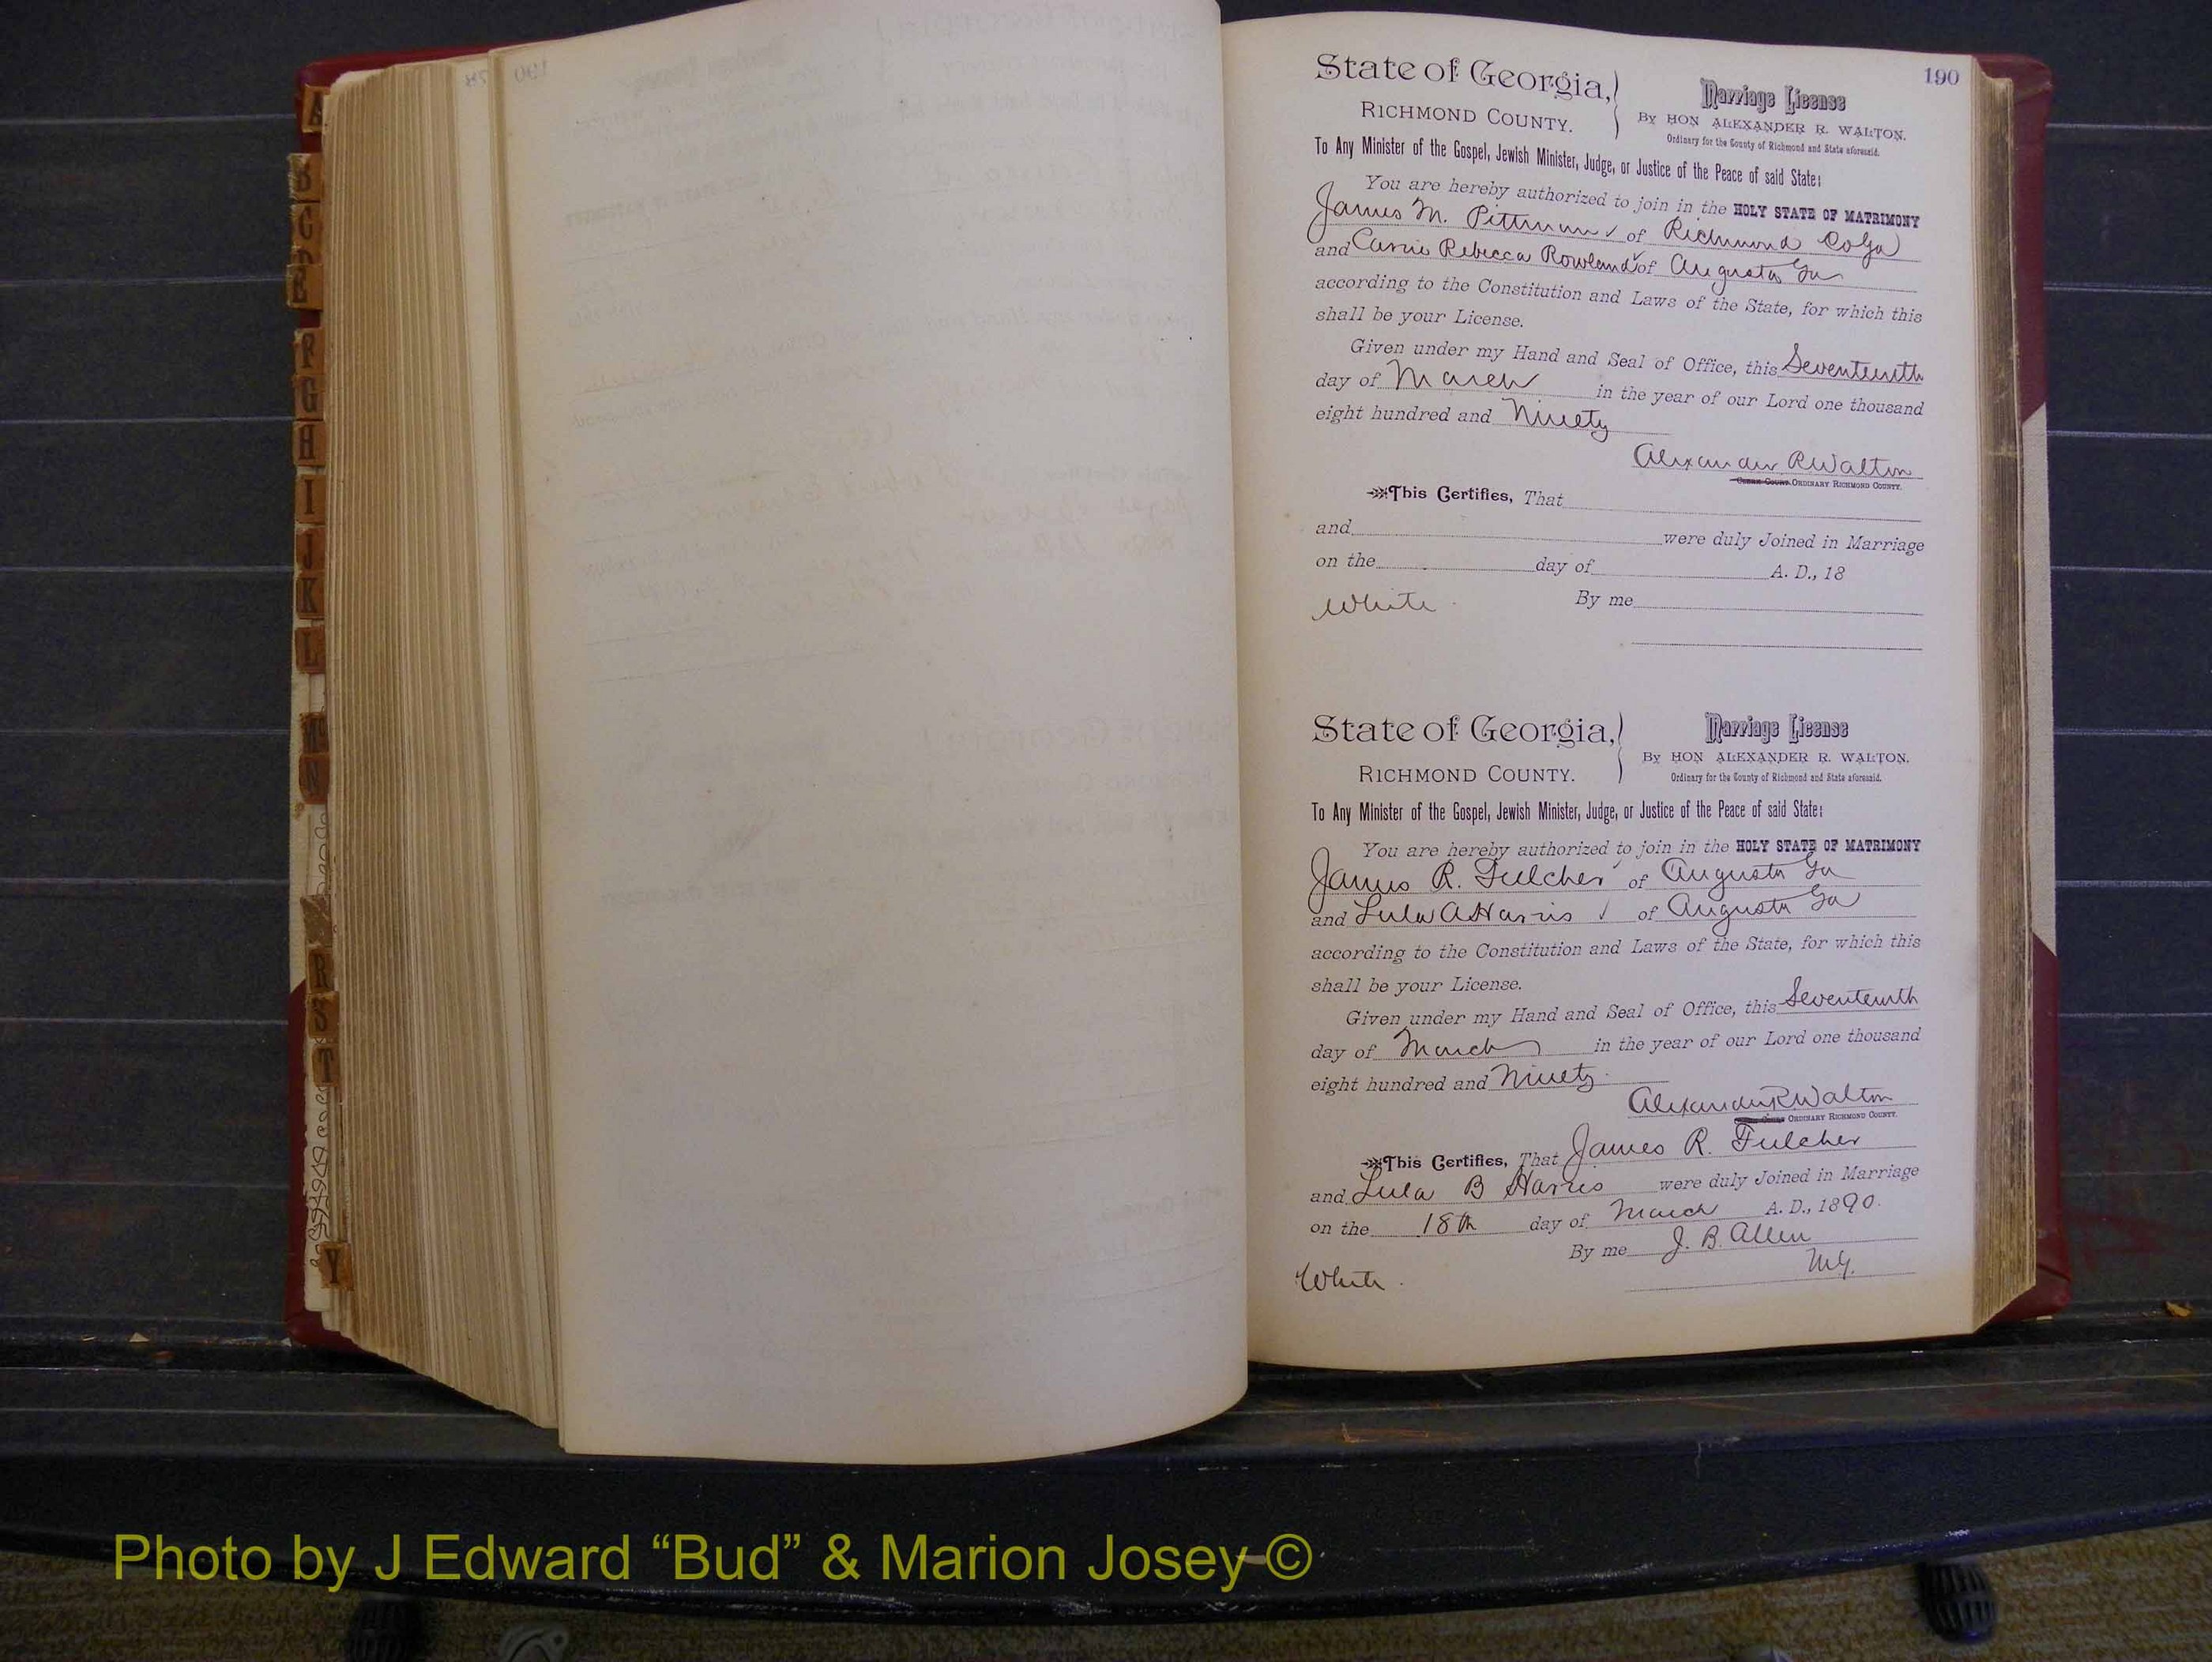 190
State of Georgia,
RICHMOND COUNTY.
Marriage License
By HON ALEXANDER R. WALTON.
Ordinary for the County of Richmond and State aforesaid.
To Any Minister of the Gospel, Jewish Minister, Judge, or Justice of the Peace of said State:
You are hereby authorized to join in the HOLY STATE OF MATRIMONY
James M. Pittman of Richmond Co Ga
and Carrie Rebecca Rowland of Augusta Ga
according to the Constitution and Laws of the State, for which this
shall be your License.
Given under my Hand and Seal of Office, this Seventeenth
day of March in the year of our Lord one thousand
eight hundred and Ninety
Alexander R Walton
CLERK COURT ORDINARY RICHMOND COUNTY.
This Certifies, That
and were duly Joined in Marriage
on the day of A. D., 18
White By me
State of Georgia,
RICHMOND COUNTY.
Marriage License
By HON ALEXANDER R. WALTON.
Ordinary for the County of Richmond and State aforesaid.
To Any Minister of the Gospel, Jewish Minister, Judge, or Justice of the Peace of said State:
You are hereby authorized to join in the HOLY STATE OF MATRIMONY
James R. Fulcher of Augusta Ga
and Lula A Harris of Augusta Ga
according to the Constitution and Laws of the State, for which this
shall be your License.
Given under my Hand and Seal of Office, this Seventeenth
day of March in the year of our Lord one thousand
eight hundred and Ninety.
Alexander R Walton
ORDINARY RICHMOND COUNTY.
This Certifies, That James R. Fulcher
and Lula B Harris were duly Joined in Marriage
on the 18th day of March A. D., 1890.
By me J. B. Allen
M.G.
White.
A
B
C
E
F
G
H
I
J
K
L
N
R
S
T
Y
Photo by J Edward “Bud” & Marion Josey ©